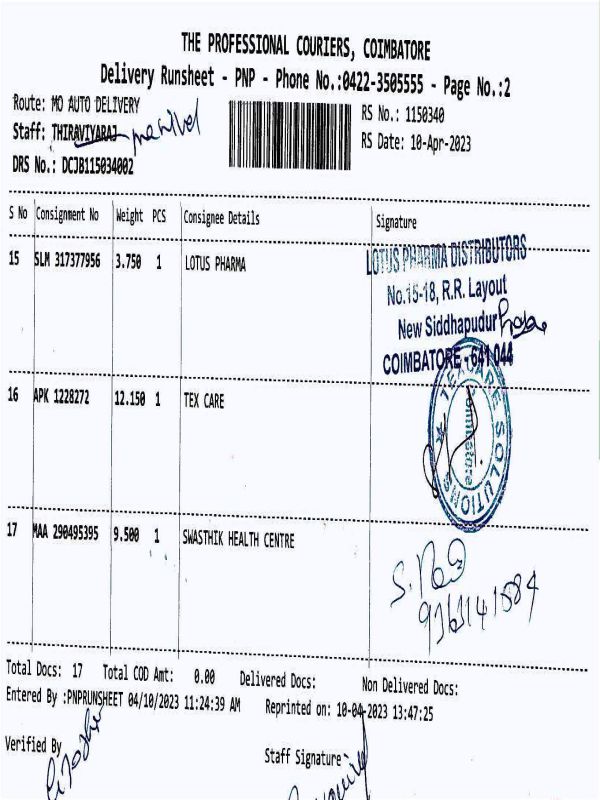 THE PROFESSIONAL COURIERS, COIMBATORE
Delivery Runsheet - PNP - Phone No.:0422-3505555 - Page No.:2
Route: MO AUTO DELIVERY
RS No.: 1150340
Staff: THIRAVIYARAJ
RS Date: 10-Apr-2023
DRS No.: DCJB115034002
S No Consignment No Weight PCS Consignee Details Signature
15 SLM 317377956 3.750 1 LOTUS PHARMA
LOTUS PHARMA DISTRIBUTORS
No.15-18, R.R. Layout
New Siddhapudur
COIMBATORE - 641 044
16 APK 1228272 12.150 1 TEX CARE
SOLUTIONS
Coimbatore
17 MAA 290495395 9.500 1 SWASTHIK HEALTH CENTRE
Total Docs: 17 Total COD Amt: 0.00 Delivered Docs: Non Delivered Docs:
Entered By :PNPRUNSHEET 04/10/2023 11:24:39 AM Reprinted on: 10-04-2023 13:47:25
Verified By
Staff Signature